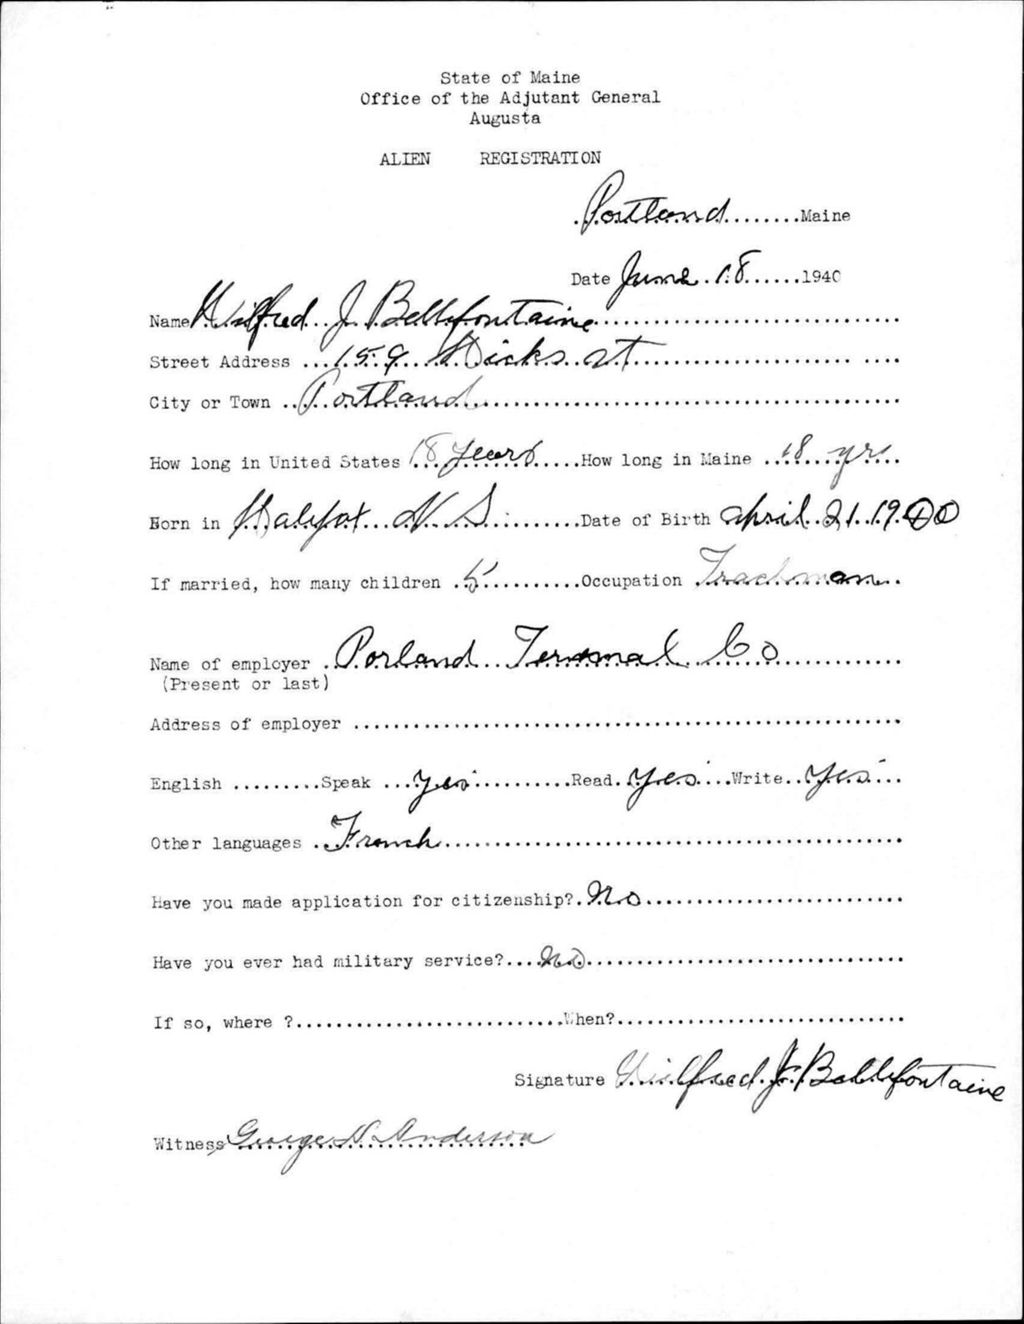 State of Maine
Office of the Adjutant General
Augusta
ALIEN REGISTRATION
Portland Maine
Date June 18 1940
Name Wilfred J Bellefontaine
Street Address 159 Hicks st
City or Town Portland
How long in United States 18 years How long in Maine 18 yrs
Born in Halifax N S Date of Birth April 21 1900
If married, how many children 5 Occupation Trackman
Name of employer Porland Termnal Co
(Present or last)
Address of employer
English Speak yes Read yes Write yes
Other languages French
Have you made application for citizenship? No
Have you ever had military service? No
If so, where ? When?
Signature Wilfred J Bellefontaine
Witness George N. Anderson